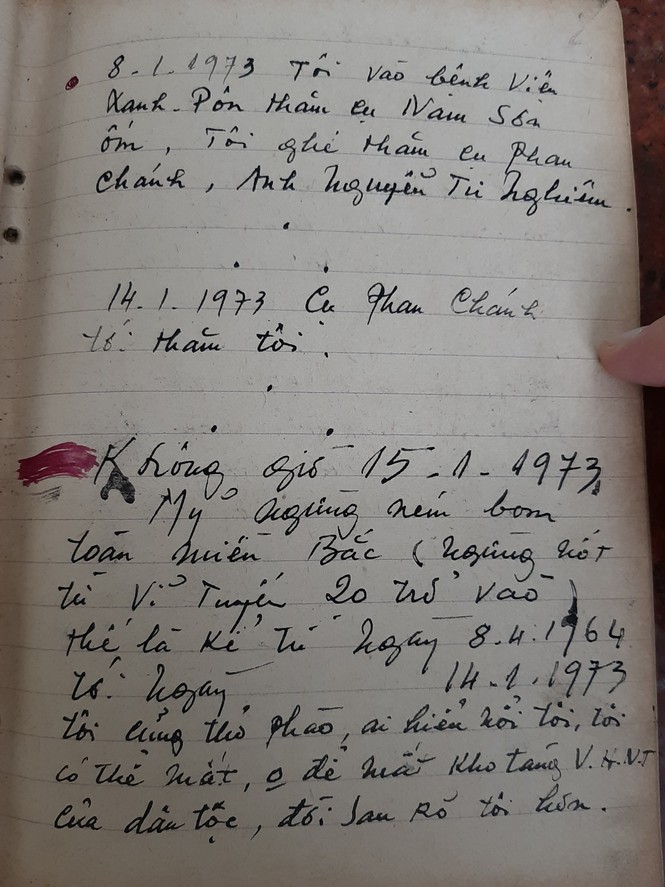 8.1.1973 Tôi vào bệnh viện
Xanh-Pôn thăm cụ Nam Sơn
ốm, Tôi ghé thăm cụ Phan
Chánh, Anh Nguyễn Tư Nghiêm.
14.1.1973 Cụ Phan Chánh
tới thăm tôi.
Không giờ 15-1-1973,
Mỹ ngừng ném bom
toàn miền Bắc (ngừng nốt
từ Vĩ Tuyến 20 trở vào)
thế là kể từ ngày 8.4.1964
tới ngày 14.1.1973
tôi cũng thở phào, ai hiểu nổi tôi, tôi
có thể mất, o để mất kho tàng V.H.N.T
của dân tộc, đời sau rõ tôi hơn.